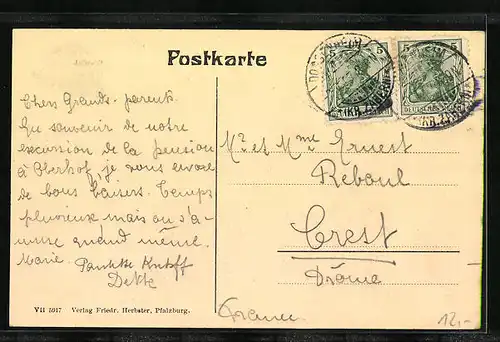 Postkarte
Chers Grands-parents.
En souvenir de notre
excursion de la pension
à Oberhof, je vous envoie
de bons baisers. Temps
pluvieux mais on s'a-
muse quand même.
Marie.
Mr et Mme Ernest
Reboul
Crest
Drôme
France
5 5
5 5
DEUTSCHES
VII 5017 Verlag Friedr. Herbster, Pfalzburg.
12,-